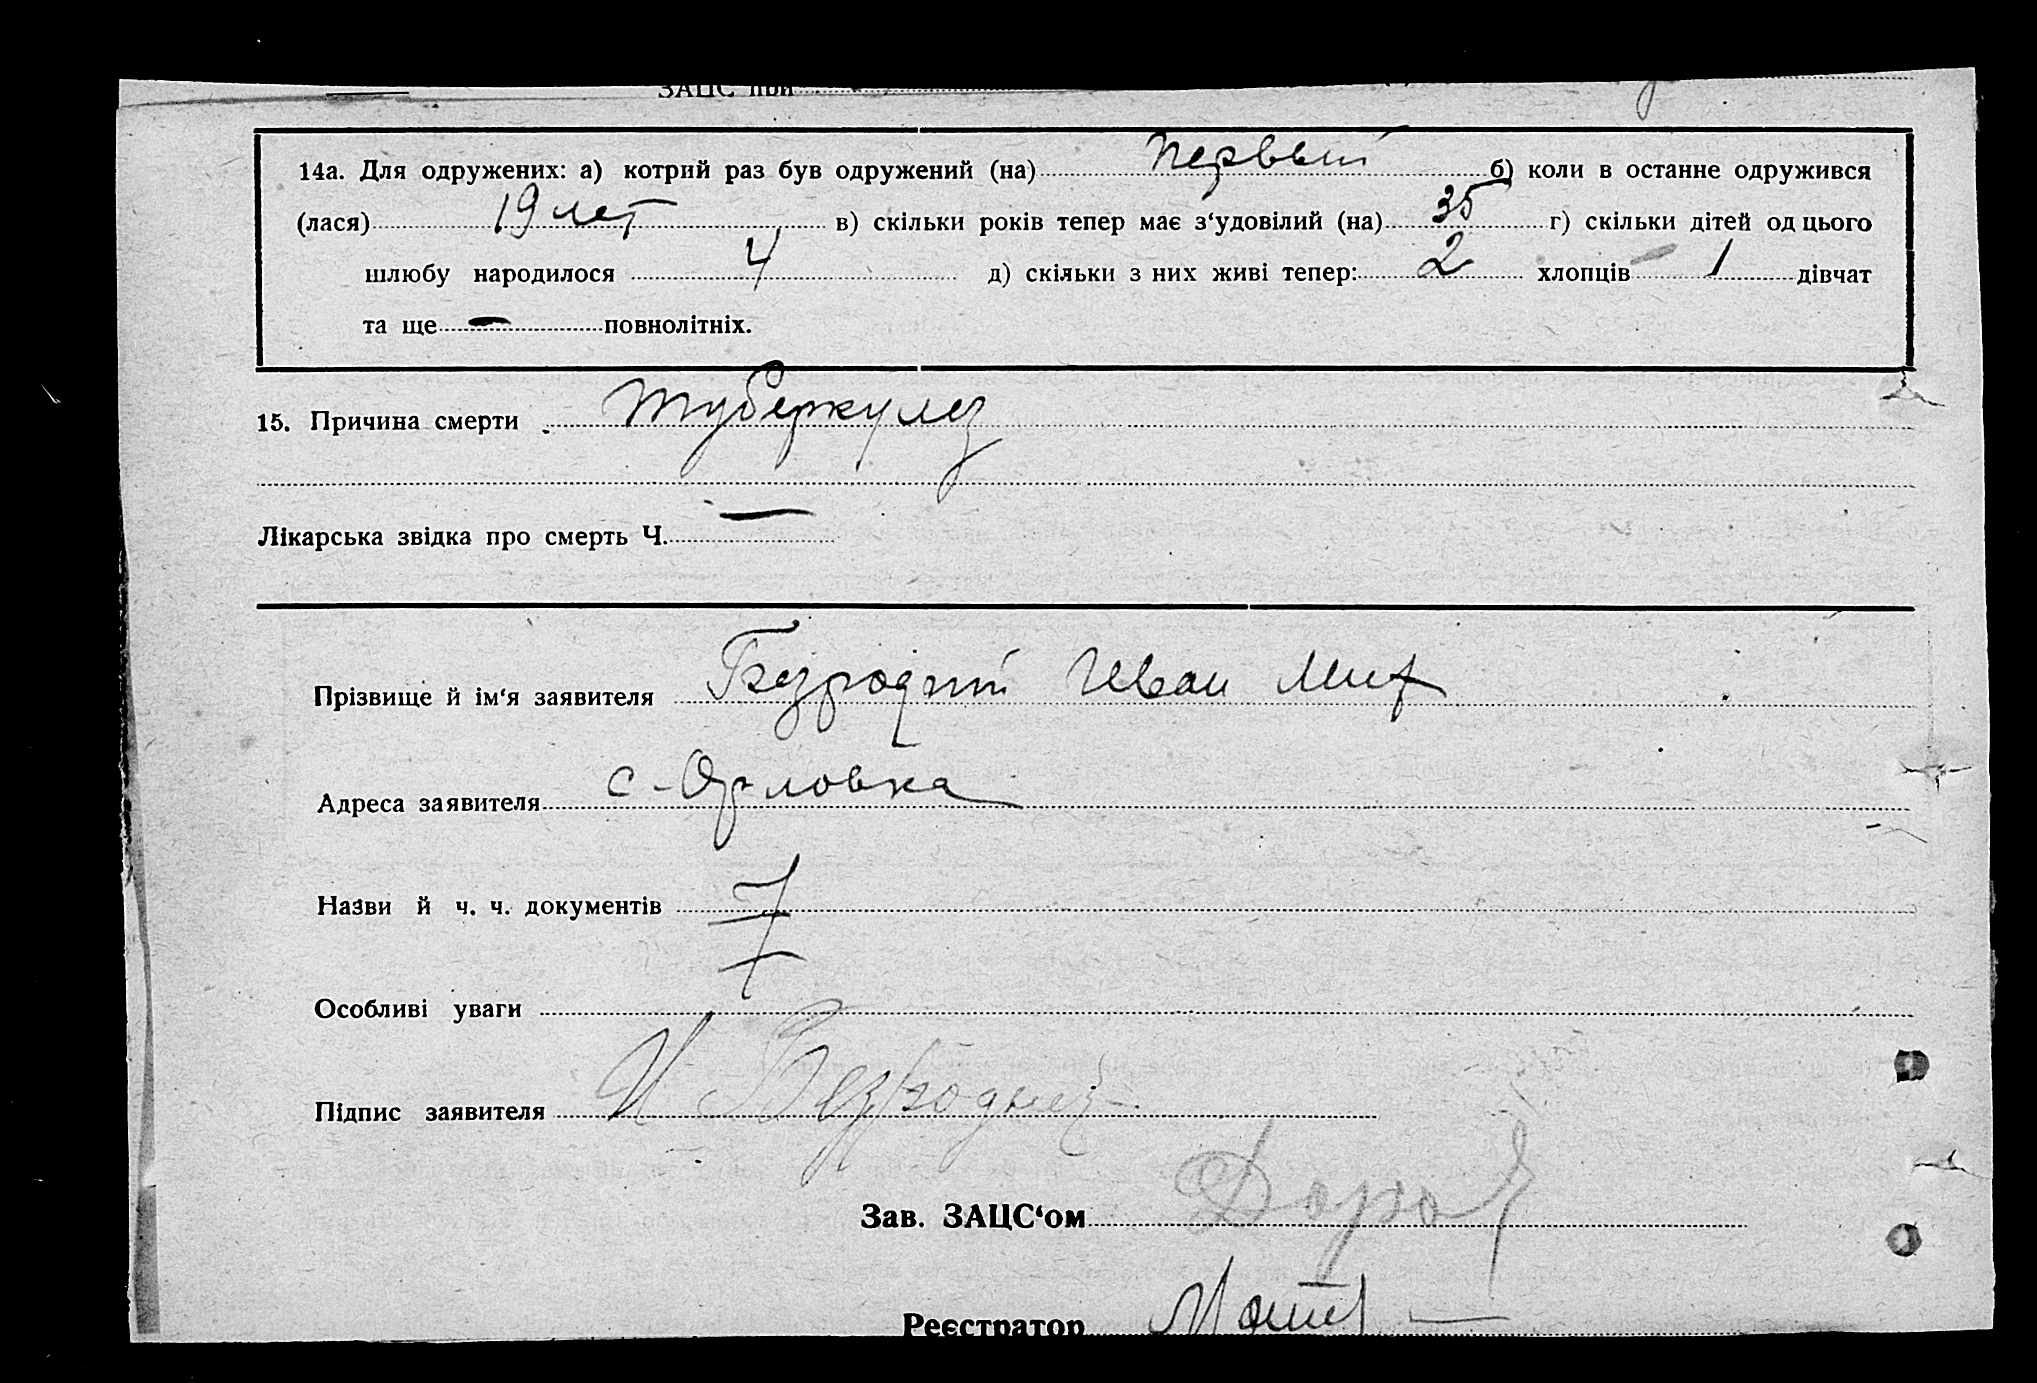 ЗАЦС при
14а. Для одружених: а) котрий раз був одружений (на) первый б) коли в останне одружився
(лася) 19 лет в) скільки років тепер має з‘удовілий (на) 35 г) скільки дітей од цього
шлюбу народилося 4 д) скільки з них живі тепер: 2 хлопців 1 дівчат
та ще — повнолітніх.
15. Причина смерти туберкулез
Лікарська звідка про смерть Ч. —
Прізвище й ім‘я заявителя Безродний Иван Мих
Адреса заявителя с-Орловка
Назви й ч. ч. документів
Особливі уваги
Підпис заявителя И Безродный
Зав. ЗАЦС‘ом
Реєстратор